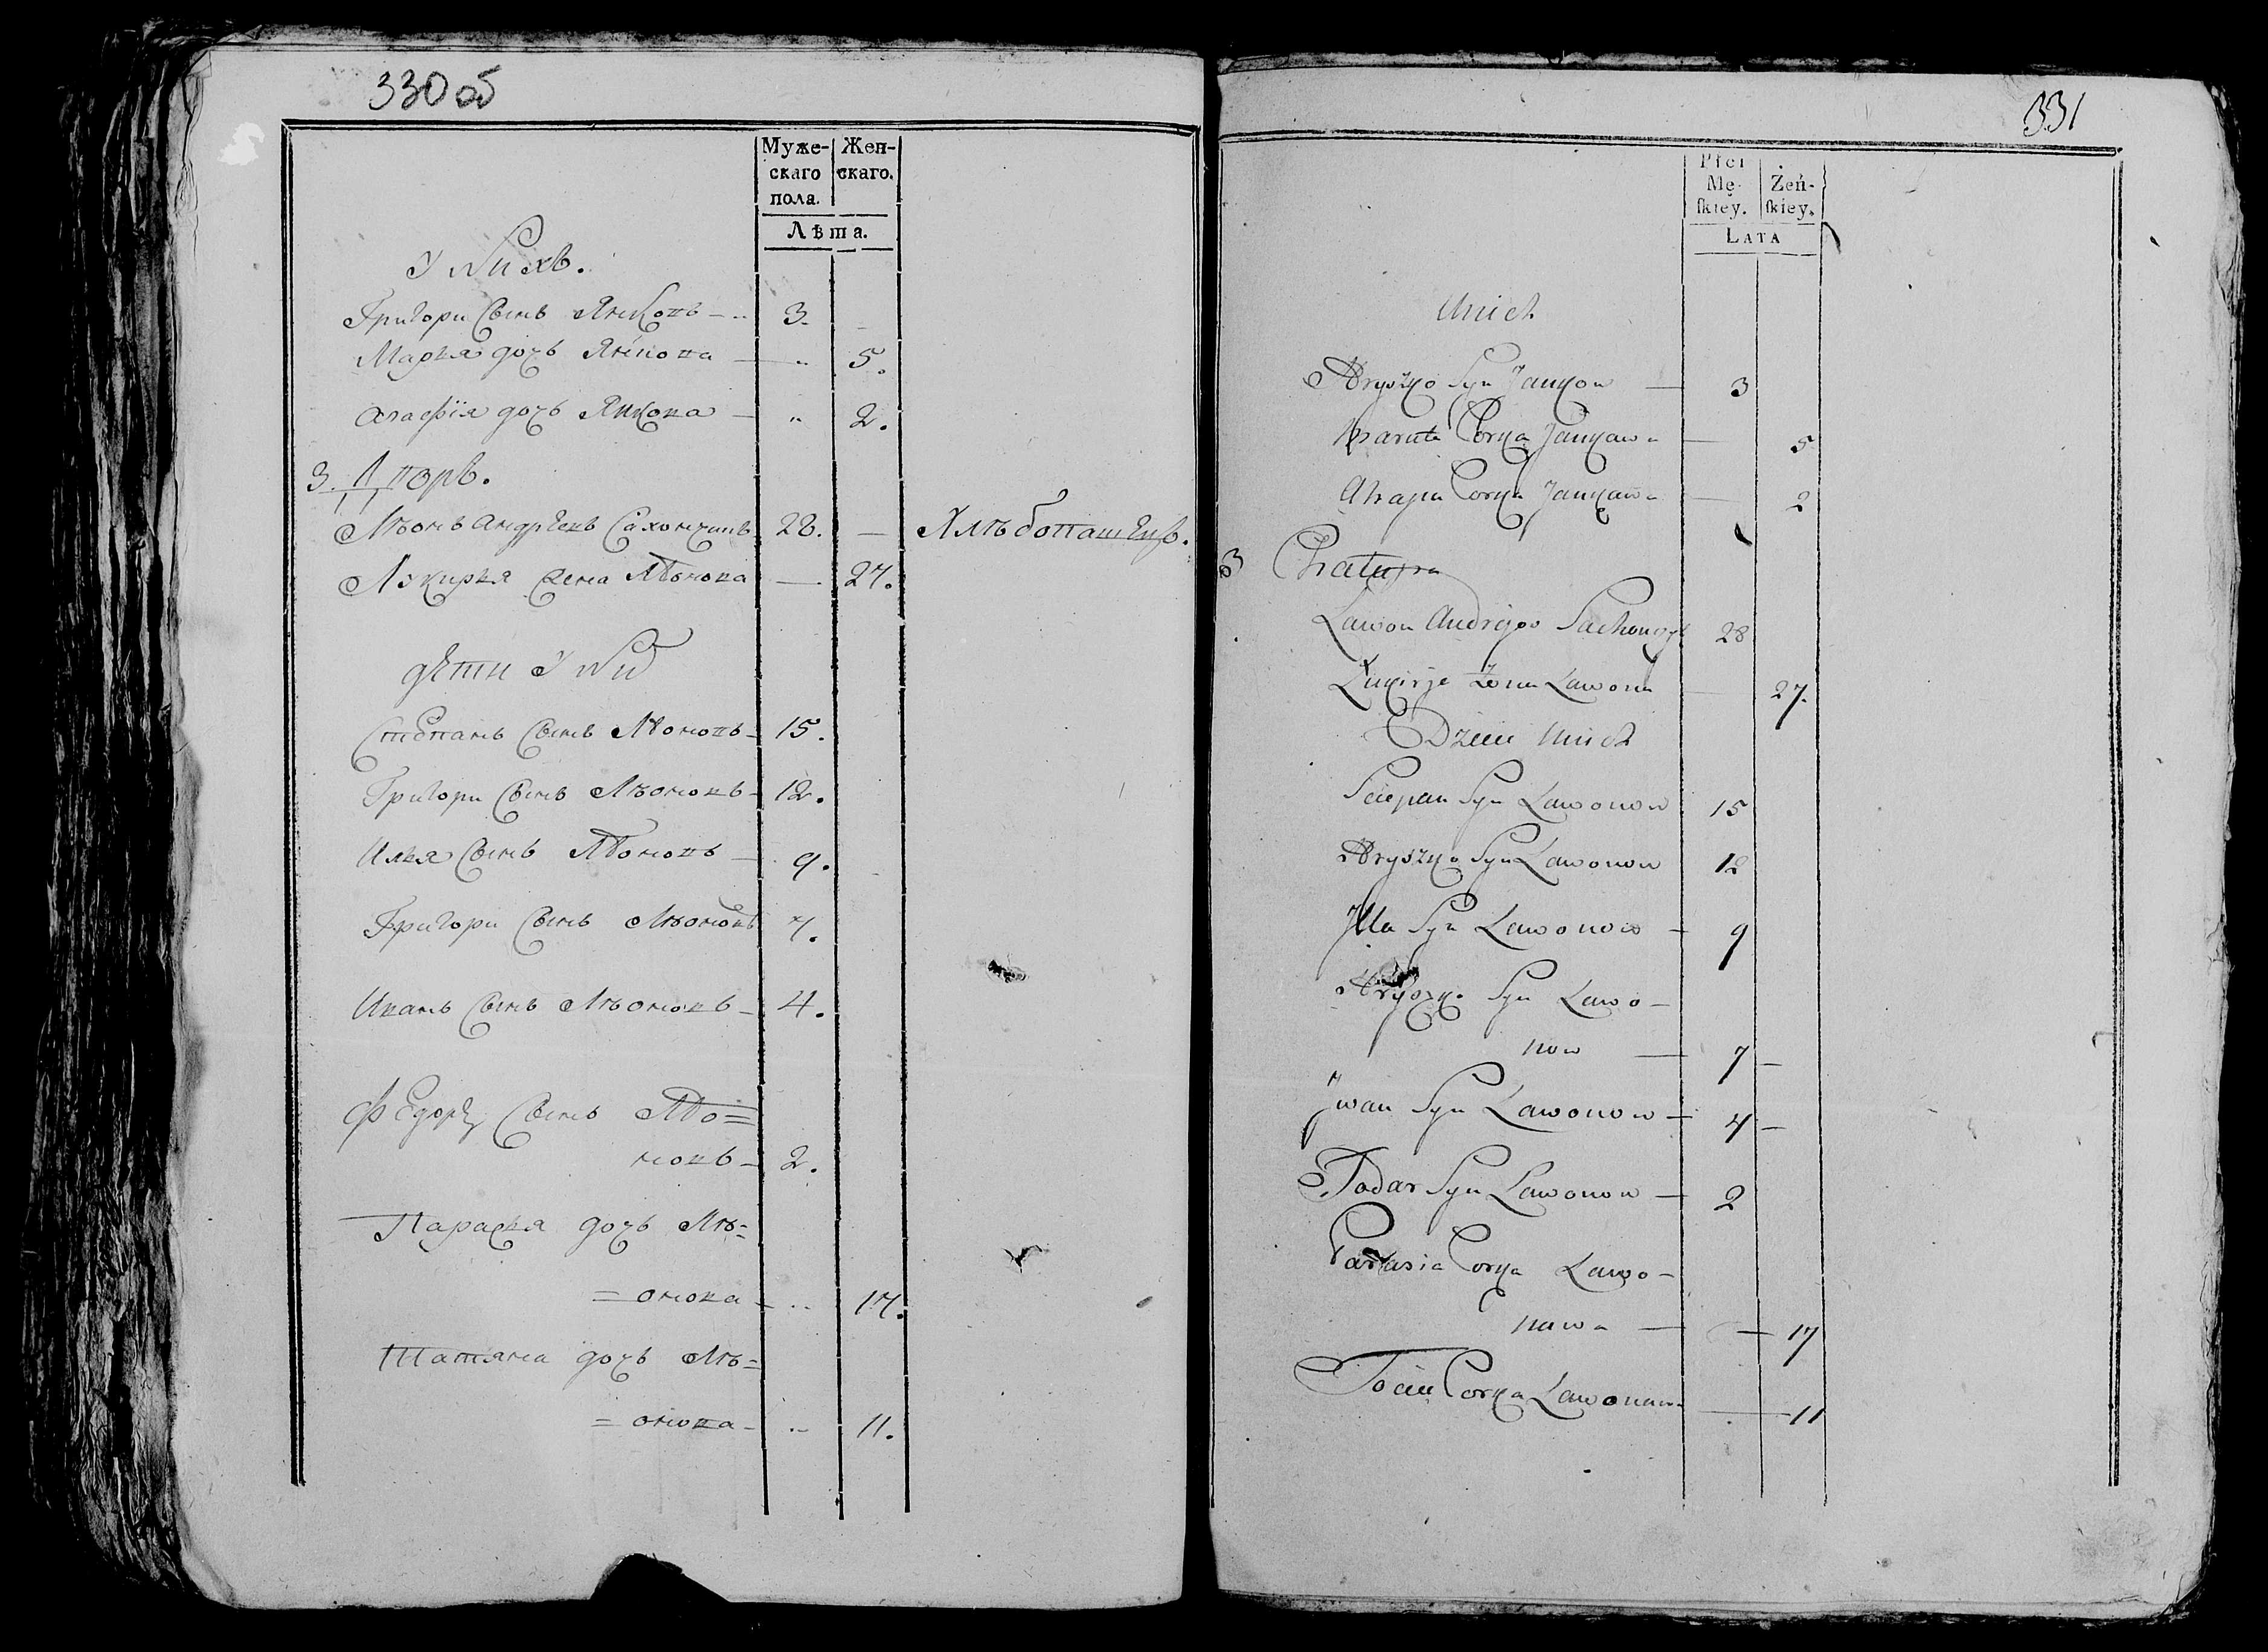 330 об
Муже-
скаго
пола.
Жен-
скаго.
Лѣта.
У нихъ.
Григори сынъ Янковъ 3.
Марья дочь Янкова 5.
Агафiя дочь Янкова 2.
3. Дворъ.
Лѣонъ Андрѣевъ 28.
Хлѣбопашецъ.
Лукирья жена Лѣонова 27.
Дѣти у них
Степанъ сынъ Лѣоновъ 15.
Григори сынъ Лѣоновъ 12.
Илья сынъ Лѣоновъ 9.
Григори сынъ Лѣоновъ 7.
Иванъ сынъ Лѣоновъ 4.
Федоръ сынъ Лѣо=
новъ 2.
Парасья дочь Лѣ=
=онова 17.
Татяна дочь Лѣ=
=онова 11.
331
Płci
Mę-
ſkiey.
Żeń-
ſkiey.
LATA
Unich
Hryszko Syn Jankow 3
Maruta Corka Jankowa 5
Ahapa Corka Jankowa 2
3 Chatupa
Lawon Andrejow 28
Łukirje Żona Lawona 27.
Dzieci Unich
Sciepan Syn Lawonow 15
Hryszko Syn Lawonow 12
Jlla Syn Lawonow 9
Hryszko Syn Lawo-
now 7
Jwan Syn Lawonow 4
Todar Syn Lawonow 2
Parasia Corka Lawo-
nawa 17
Corka Lawonawa 11